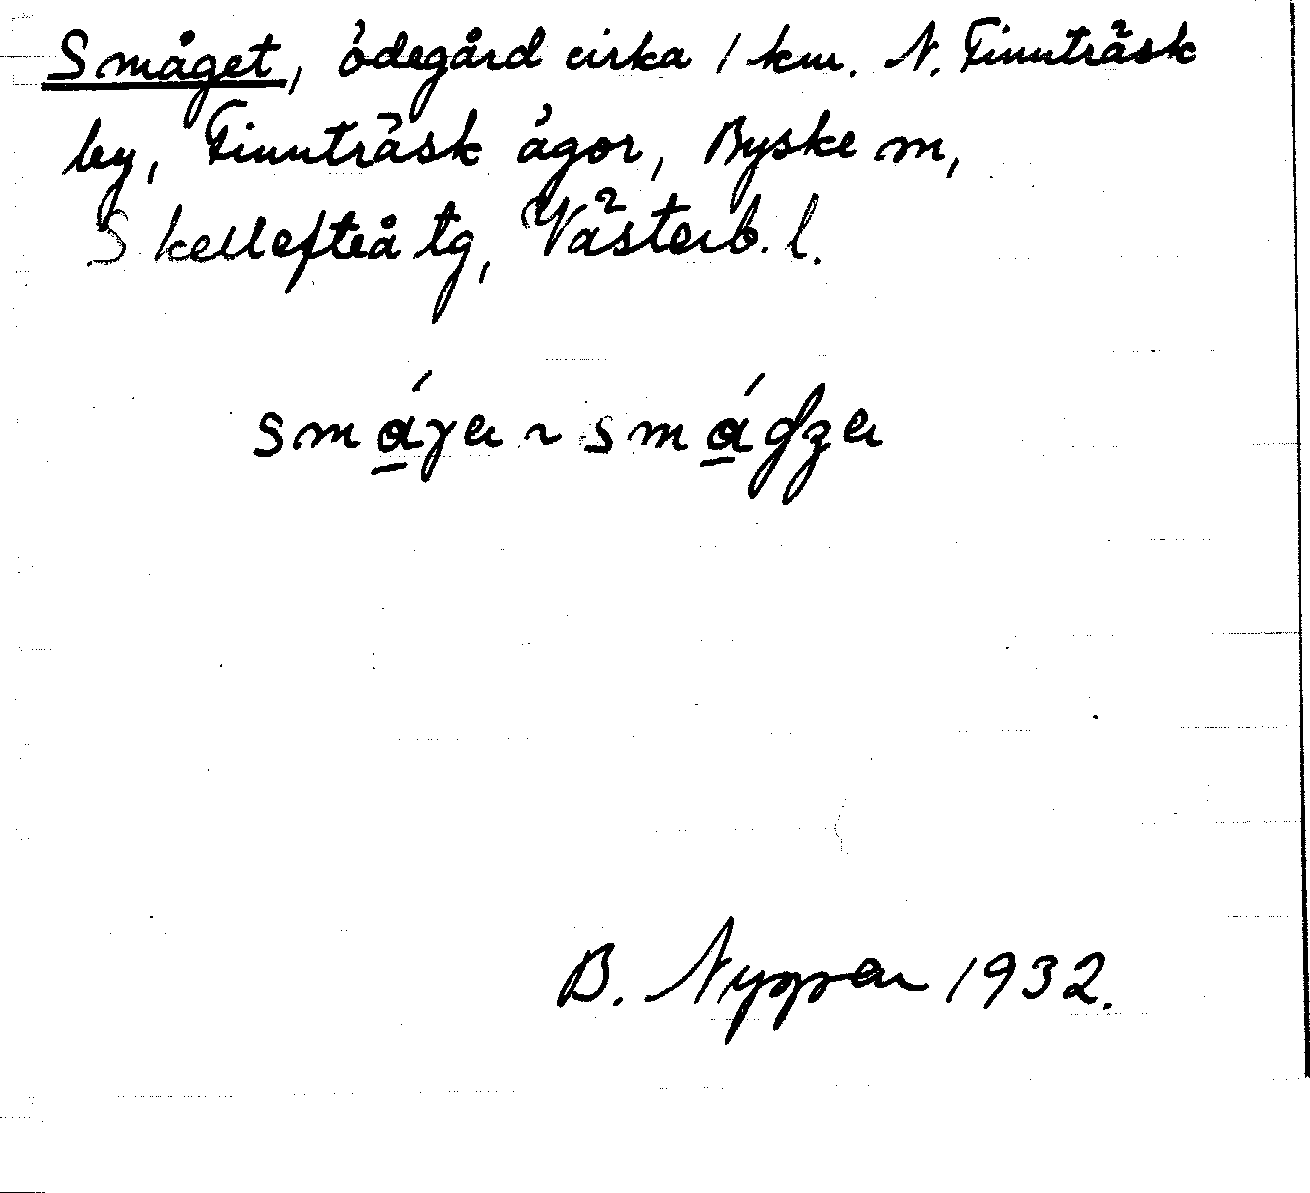 Småget, ödegård cirka 1 km. N. Finnträsk
by, Finnträsk ägor, Byske sn,
Skellefteå tg, Västerb. l.
B. Nyman 1932.